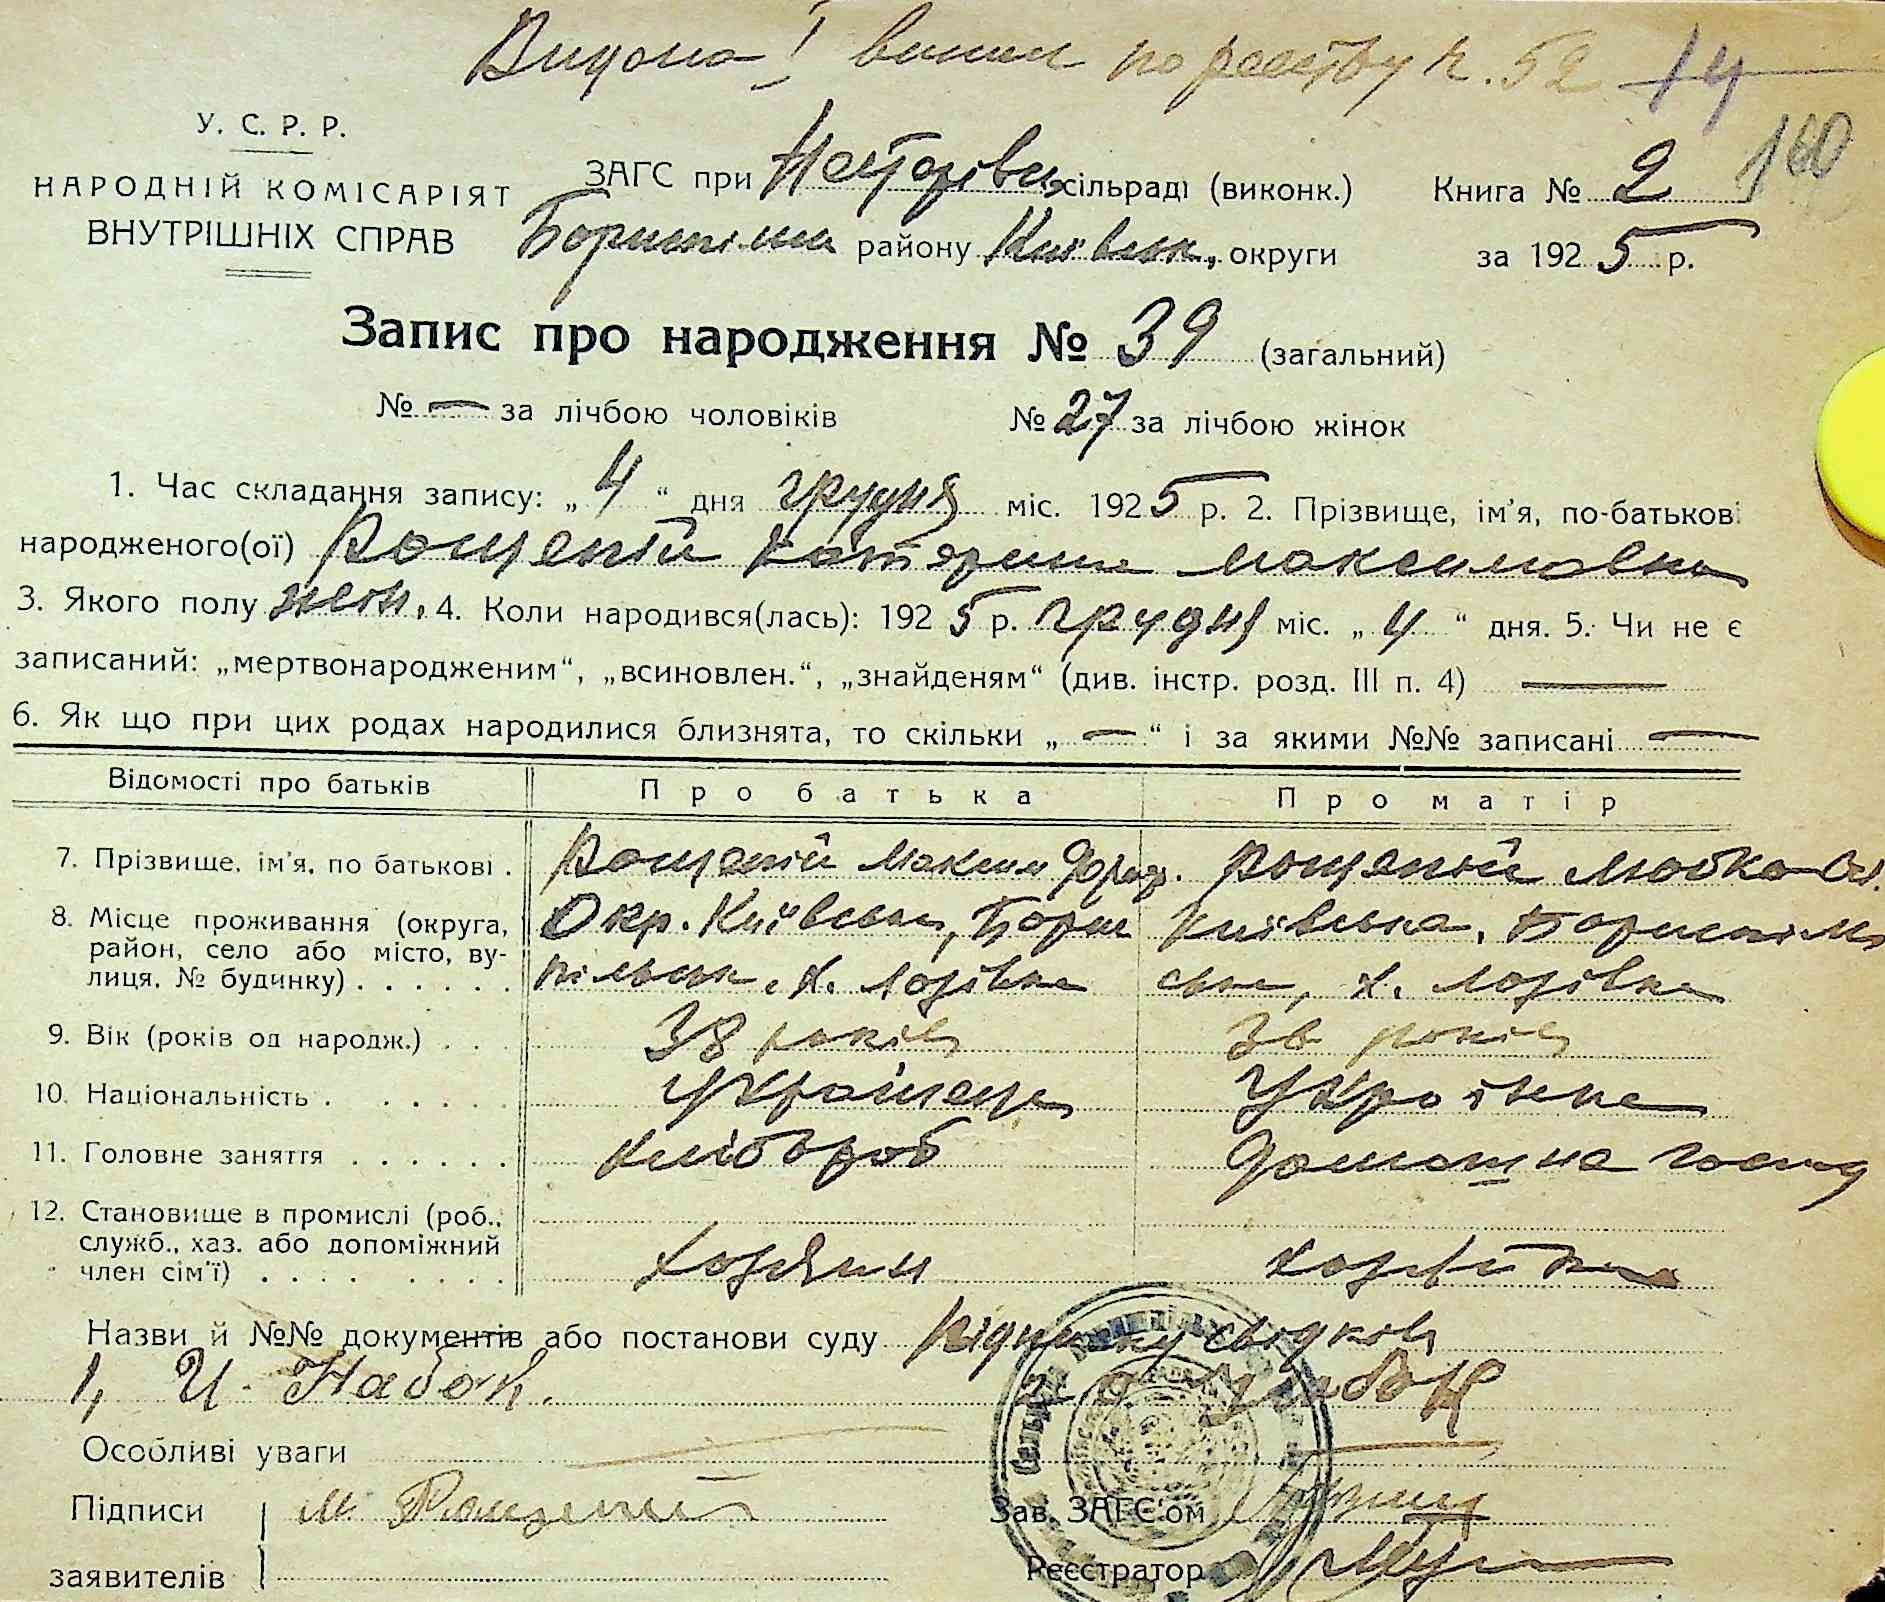 Видана вишис по реєстру N. 52 14
160
У. С. Р. Р.
НАРОДНІЙ КОМІСАРІЯТ
ВНУТРІШНІХ СПРАВ
ЗАГС при сільраді (виконк.)
районуКиївськ. округи
Книга № 2
за 1925 р.
Запис про народження № 39 (загальний)
№ — за лічбою чоловіків № 27 за лічбою жінок
1. Час складання запису: „4“ дня грудня міс. 1925 р. 2. Прізвище, ім'я, по-батькові
народженого(ої) Рощепій Катерина Максимовна
3. Якого полу жен. 4. Коли народився(лась): 1925 р. грудня міс. „4“ дня. 5. Чи не є
записаний: „мертвонародженим“, „всиновлен.“, „знайденям“ (див. інстр. розд. III п. 4) —
6. Як що при цих родах народилися близнята, то скільки „—“ і за якими №№ записані —
Відомості про батьків Про батька Про матір
7. Прізвище, ім'я, по батькові . Рощепій Максим Рощепій Любка
8. Місце проживання (округа, Окр. Київська, Бориш Київська, Боришпіль
район, село або місто, ву-
лиця, № будинку) . . . . . . пільськ. х. Лозівка ська, х. Лозівка
9. Вік (років од народж.) . . . 38 років 36 років
10. Національність . . . . . . Українець Українка
11. Головне заняття . . . . . . Хлібороб Домашна господ
12. Становище в промислі (роб.,
служб., хаз. або допоміжний
член сім'ї) . . . . . . . . Хозяин хозяйка
Назви й №№ документів або постанови суду підписку свідків
1, И. Набок. 2
Особливі уваги —
Підписи М. Рощепий Зав. ЗАГС'ом
заявителів Реєстратор